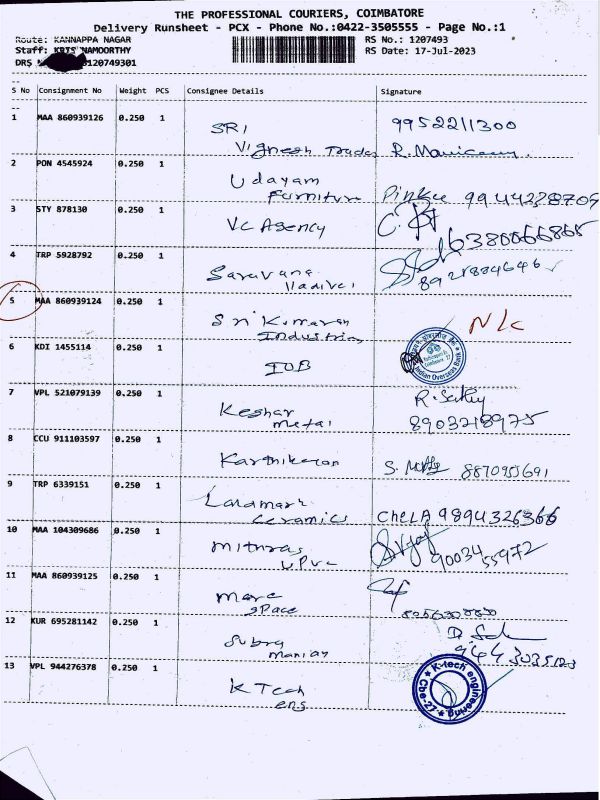 THE PROFESSIONAL COURIERS, COIMBATORE
Delivery Runsheet - PCX - Phone No.:0422-3505555 - Page No.:1
Route: KANNAPPA NAGAR RS No.: 1207493
Staff: KRIS NAMOORTHY RS Date: 17-Jul-2023
DRS 120749301
S No Consignment No Weight PCS Consignee Details Signature
1 MAA 860939126 0.250 1 SRI 9952211300
Vignesh Trades R.
2 PON 4545924 0.250 1 Udayam
Furniture Pinkee 9944238709
3 STY 878130 0.250 1 VC Agency
6380066865
4 TRP 5928792 0.250 1 Saravana
Vadivel
5 MAA 860939124 0.250 1 Sri Kumaran NLC
Industries
6 KDI 1455114 0.250 1 IOB Indian Overseas Bank
7 VPL 521079139 0.250 1 Keshar R.
metal 8903218975
8 CCU 911103597 0.250 1 Karthikeyan S. 8870955691
9 TRP 6339151 0.250 1 Landmark
Ceramics Chela 9894326366
10 MAA 104309686 0.250 1 mithras
upvc 9003455972
11 MAA 860939125 0.250 1 marc
space
12 KUR 695281142 0.250 1 Subra
manian
13 VPL 944276378 0.250 1 K Tech K-tech engineering
eng Cbe-27